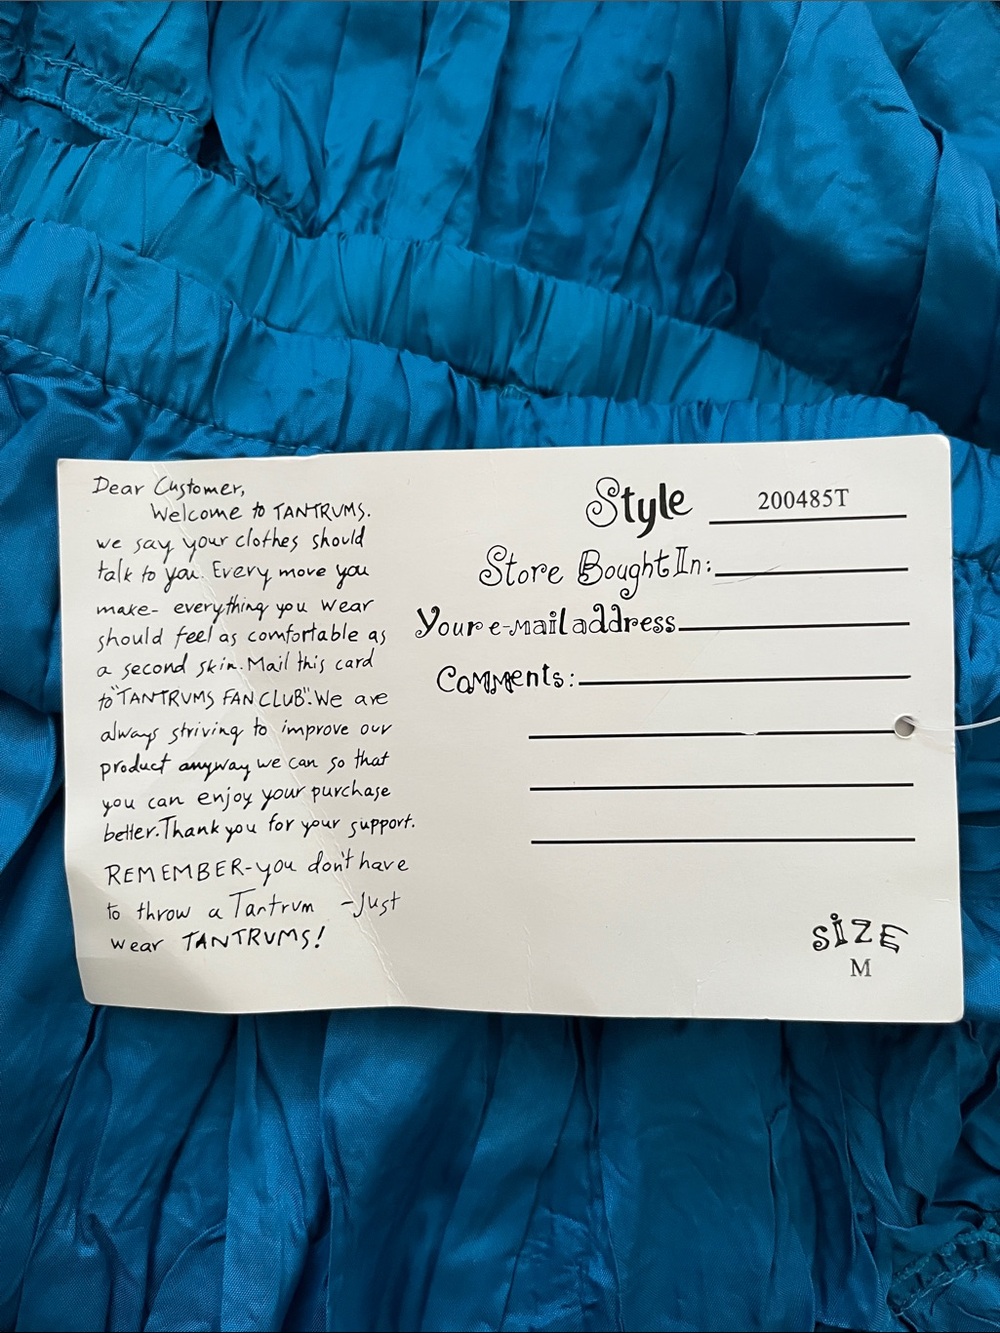 Dear Customer,
Welcome to TANTRUMS.
we say your clothes should
talk to you. Every move you
make- everything you wear
should feel as comfortable as
a second skin. Mail this card
to "TANTRUMS FAN CLUB". We are
always striving to improve our
product anyway we can so that
you can enjoy your purchase
better. Thank you for your support.
REMEMBER-you don't have
to throw a Tantrum -Just
wear TANTRUMS!
Style 200485T
Store Bought In:
Your e-mail address
Comments:
SIZE
M